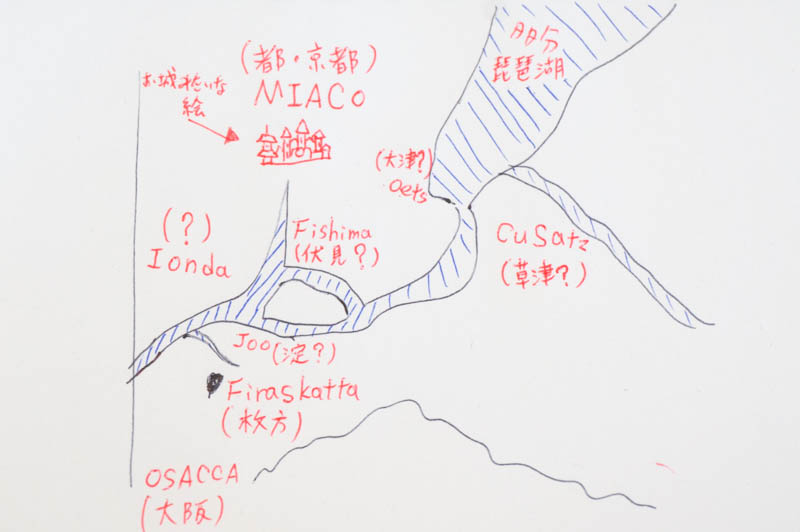 (都・京都)
MIACO
お城みたいな
絵
多分
琵琶湖
(大津?)
Oets
(?)
Ionda
Fishima
(伏見?)
CuSatz
(草津?)
Joo(淀?)
Firaskatta
(枚方)
OSACCA
(大阪)